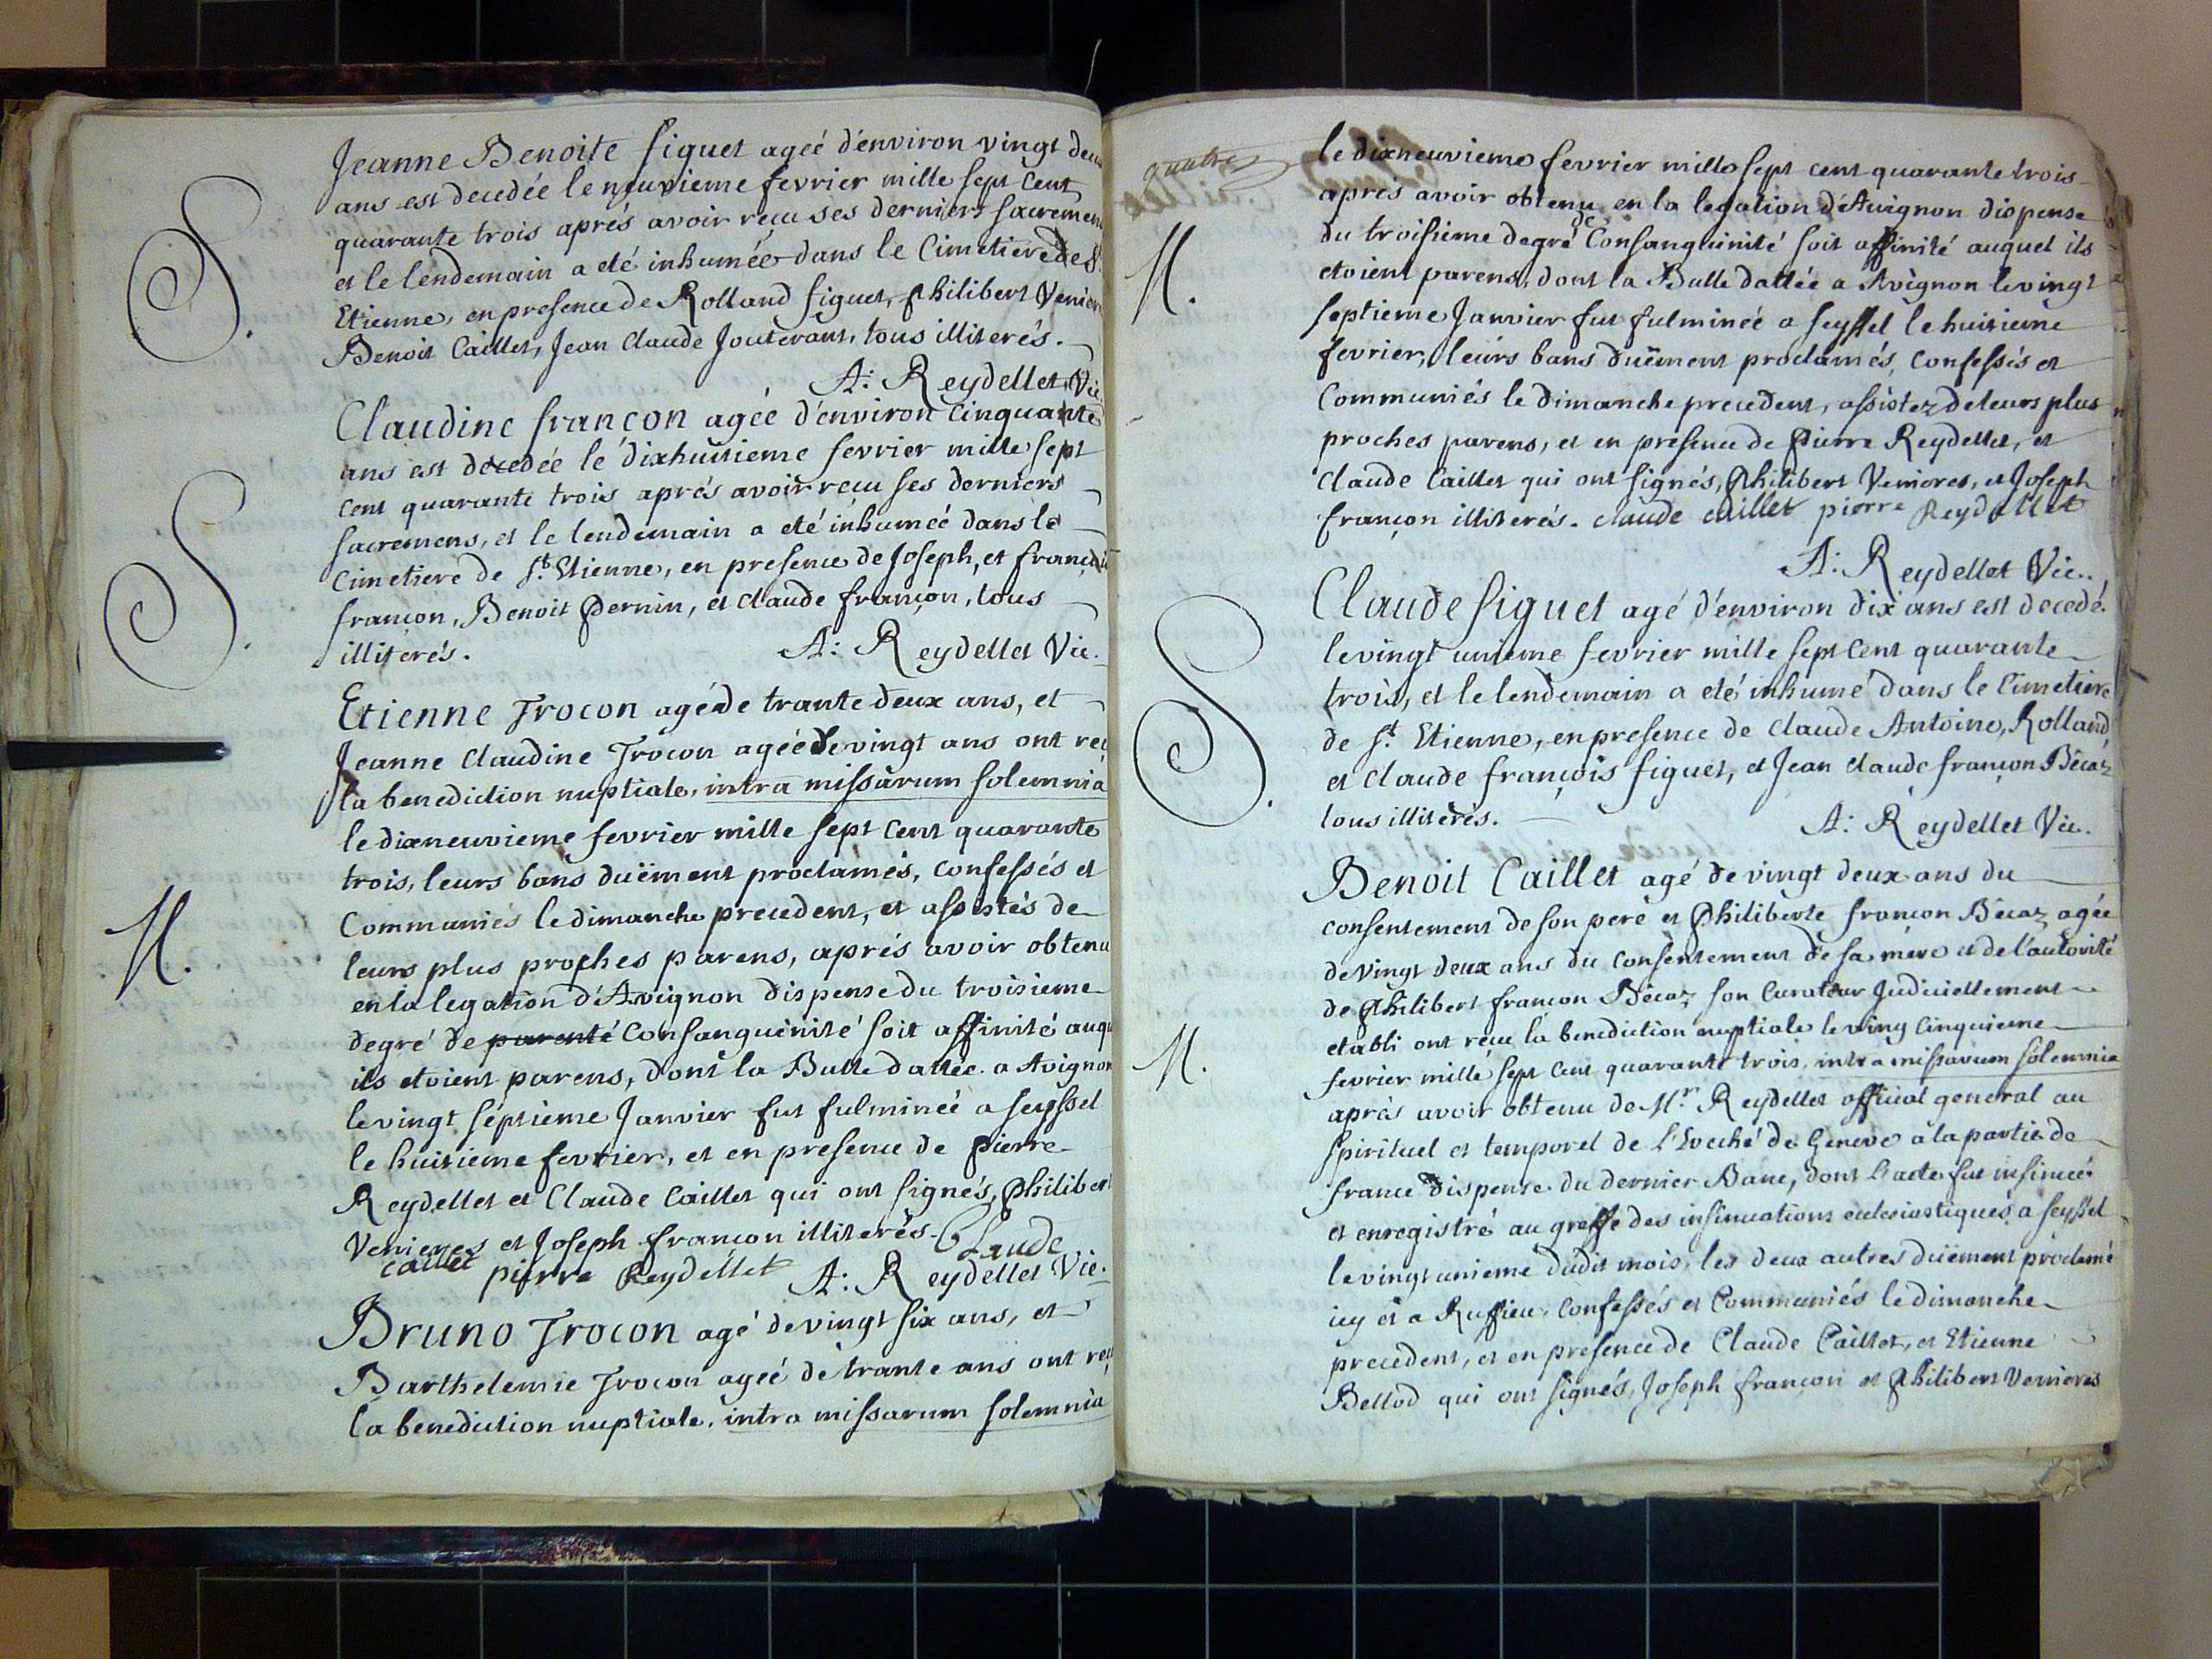 Jeanne Benoite figuet ageé d'environ vingt deux
ans est decedée le neuvieme fevrier mille sept cent
quarante trois aprés avoir reçu ses derniers sacremens
et le lendemain a eté inhumée dans le Cimetiere de St
Etienne, en presence de Rolland figuet, Philibert Venieres
Benoit Caillet, Jean Claude Jouterant, tous illiterés.
A: Reydellet Vic
S.
Claudine françon agée d'environ cinquante
ans est decedée le dixhuitieme fevrier mille sept
cent quarante trois aprés avoir reçu ses derniers
sacremens, et le lendemain a eté inhumeé dans le
Cimetiere de St. Etienne, en presence de Joseph, et
françon, Benoit Pernin, et Claude françon, tous
illiterés. A: Reydellet Vic.
S.
Etienne Trocon agé de trante deux ans, et
Jeanne Claudine Trocon agée de vingt ans ont reçu
la benediction nuptiale, intra missarum solemnia
le dixneuvieme fevrier mille sept cent quarante
trois, leurs bans duëment proclamés, confessés et
Communiés le dimanche precedent, et assistés de
leurs plus proches parens, aprés avoir obtenu
en la legation d'Avignon dispense du troisieme
degré de parenté Consanguinité soit affinité auquel
ils etoient parens, dont la Bulle dattée a Avignon
le vingt séptieme Janvier fut fulmineé a seyssel
le huitieme fevrier, et en presence de pierre
Reydellet et Claude Caillet qui ont signés, Philibert
Venieres et Joseph françon illiterés. Claude
caillet pierre Reydellet A: Reydellet Vic.
M.
Bruno Trocon agé de vingt six ans, et
Barthelemie Trocon ageé de trante ans ont reçu
la benediction nuptiale, intra missarum solemnia
quatre
le dixneuvieme fevrier mille sept cent quarante trois
aprés avoir obtenu en la legation d'Avignon dispense
du troisieme degré de Consanguinité soit affinité auquel ils
etoient parens, dont la Bulle dattée a Avignon le vingt
septieme Janvier fut fulmineé a seyssel le huitieme
fevrier, leurs bans duëment proclamés, confessés et
Communiés le dimanche precedent, assistez de leurs plus
proches parens, et en presence de Pierre Reydellet, et
Claude Caillet qui ont signés, Philibert Venieres, et Joseph
françon illiterés. claude caillet pierre Reydellet
A: Reydellet Vic.
M.
Claude figuet agé d'environ dix ans est decedé
le vingt unieme fevrier mille sept cent quarante
trois, et le lendemain a eté inhumé dans le Cimetiere
de St. Etienne, en presence de Claude Antoine, Rolland,
et Claude françois figuet, et Jean Claude françon Bécaz
tous illiterés. A: Reydellet Vic.
S.
Benoit Caillet agé de vingt deux ans du
consentement de son pere et Philiberte françon Bécaz agée
de vingt deux ans du consentement de sa mere et de l'autorité
de Philibert françon Bécaz son Curateur Judiciellement
etabli ont reçu la benediction nuptiale le ving cinquieme
fevrier mille sept cent quarante trois, intra missarum solemnia
aprés avoir obtenu de Mr. Reydellet official general au
spirituel et temporel de l'Eveché de Geneve a la partie de
france dispense du dernier Banc, dont l'acte fut insinué
et enregistré au greffe des insinuations ecclesiastiques a seyssel
le vingt unieme dudit mois, les deux autres duëment proclamé
icy et a Ruffieu, Confessés et Communiés le dimanche
precedent, et en presence de Claude Caillet, et Etienne
Bellod qui ont signés, Joseph françon et Philibert Venieres
M.